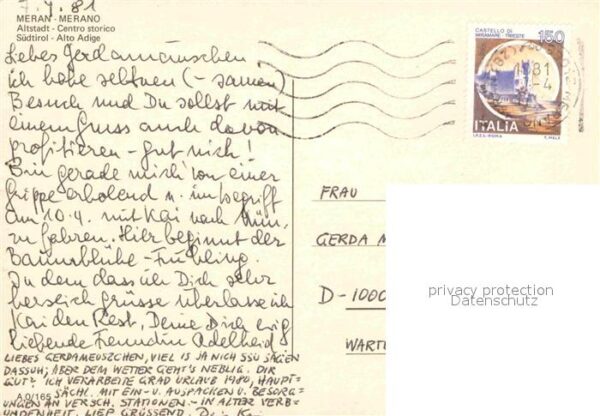 7.4.81
MERAN - MERANO
Altstadt - Centro storico
Südtirol - Alto Adige
Liebes Gerdamäuschen
ich habe seltnen (-samen)
Besuch und Du sollst mit
einem Gruss auch davon
profitieren - gut nich!
Bin gerade mich von einer
Grippe erholend u. im begriff
am 10.4. mit Kai nach Mün.
zu fahren. Hier beginnt der
Baumblühe - Frühling.
Zu dem dass ich Dich sehr
herzlich grüsse überlasse ich
Kai den Rest, Deine Dich ewig
liebende Freundin Adelheid
LIEBES GERDAMEUSZCHEN, VIEL IS JA NICH ZSU SAGEN
DASSUH; ABER DEM WETTER GEHT'S NEBLIG. DIR
GUT? ICH VERARBEITE GRAD URLAUB 1980, HAUPT-
SÄCHL. MIT EIN- U. AUSPACKEN U. BESORG-
A 0/165
UNGEN AN VERSCH. STATIONEN. - IN ALTER VERB-
UNDENHEIT. LIEP GRÜSSEND. Dein Kai
CASTELLO DI
MIRAMARE - TRIESTE
150
81
-4
ITALIA
I.P.Z.S. - ROMA
FRAU
GERDA
D-1000
WART
privacy protection
Datenschutz